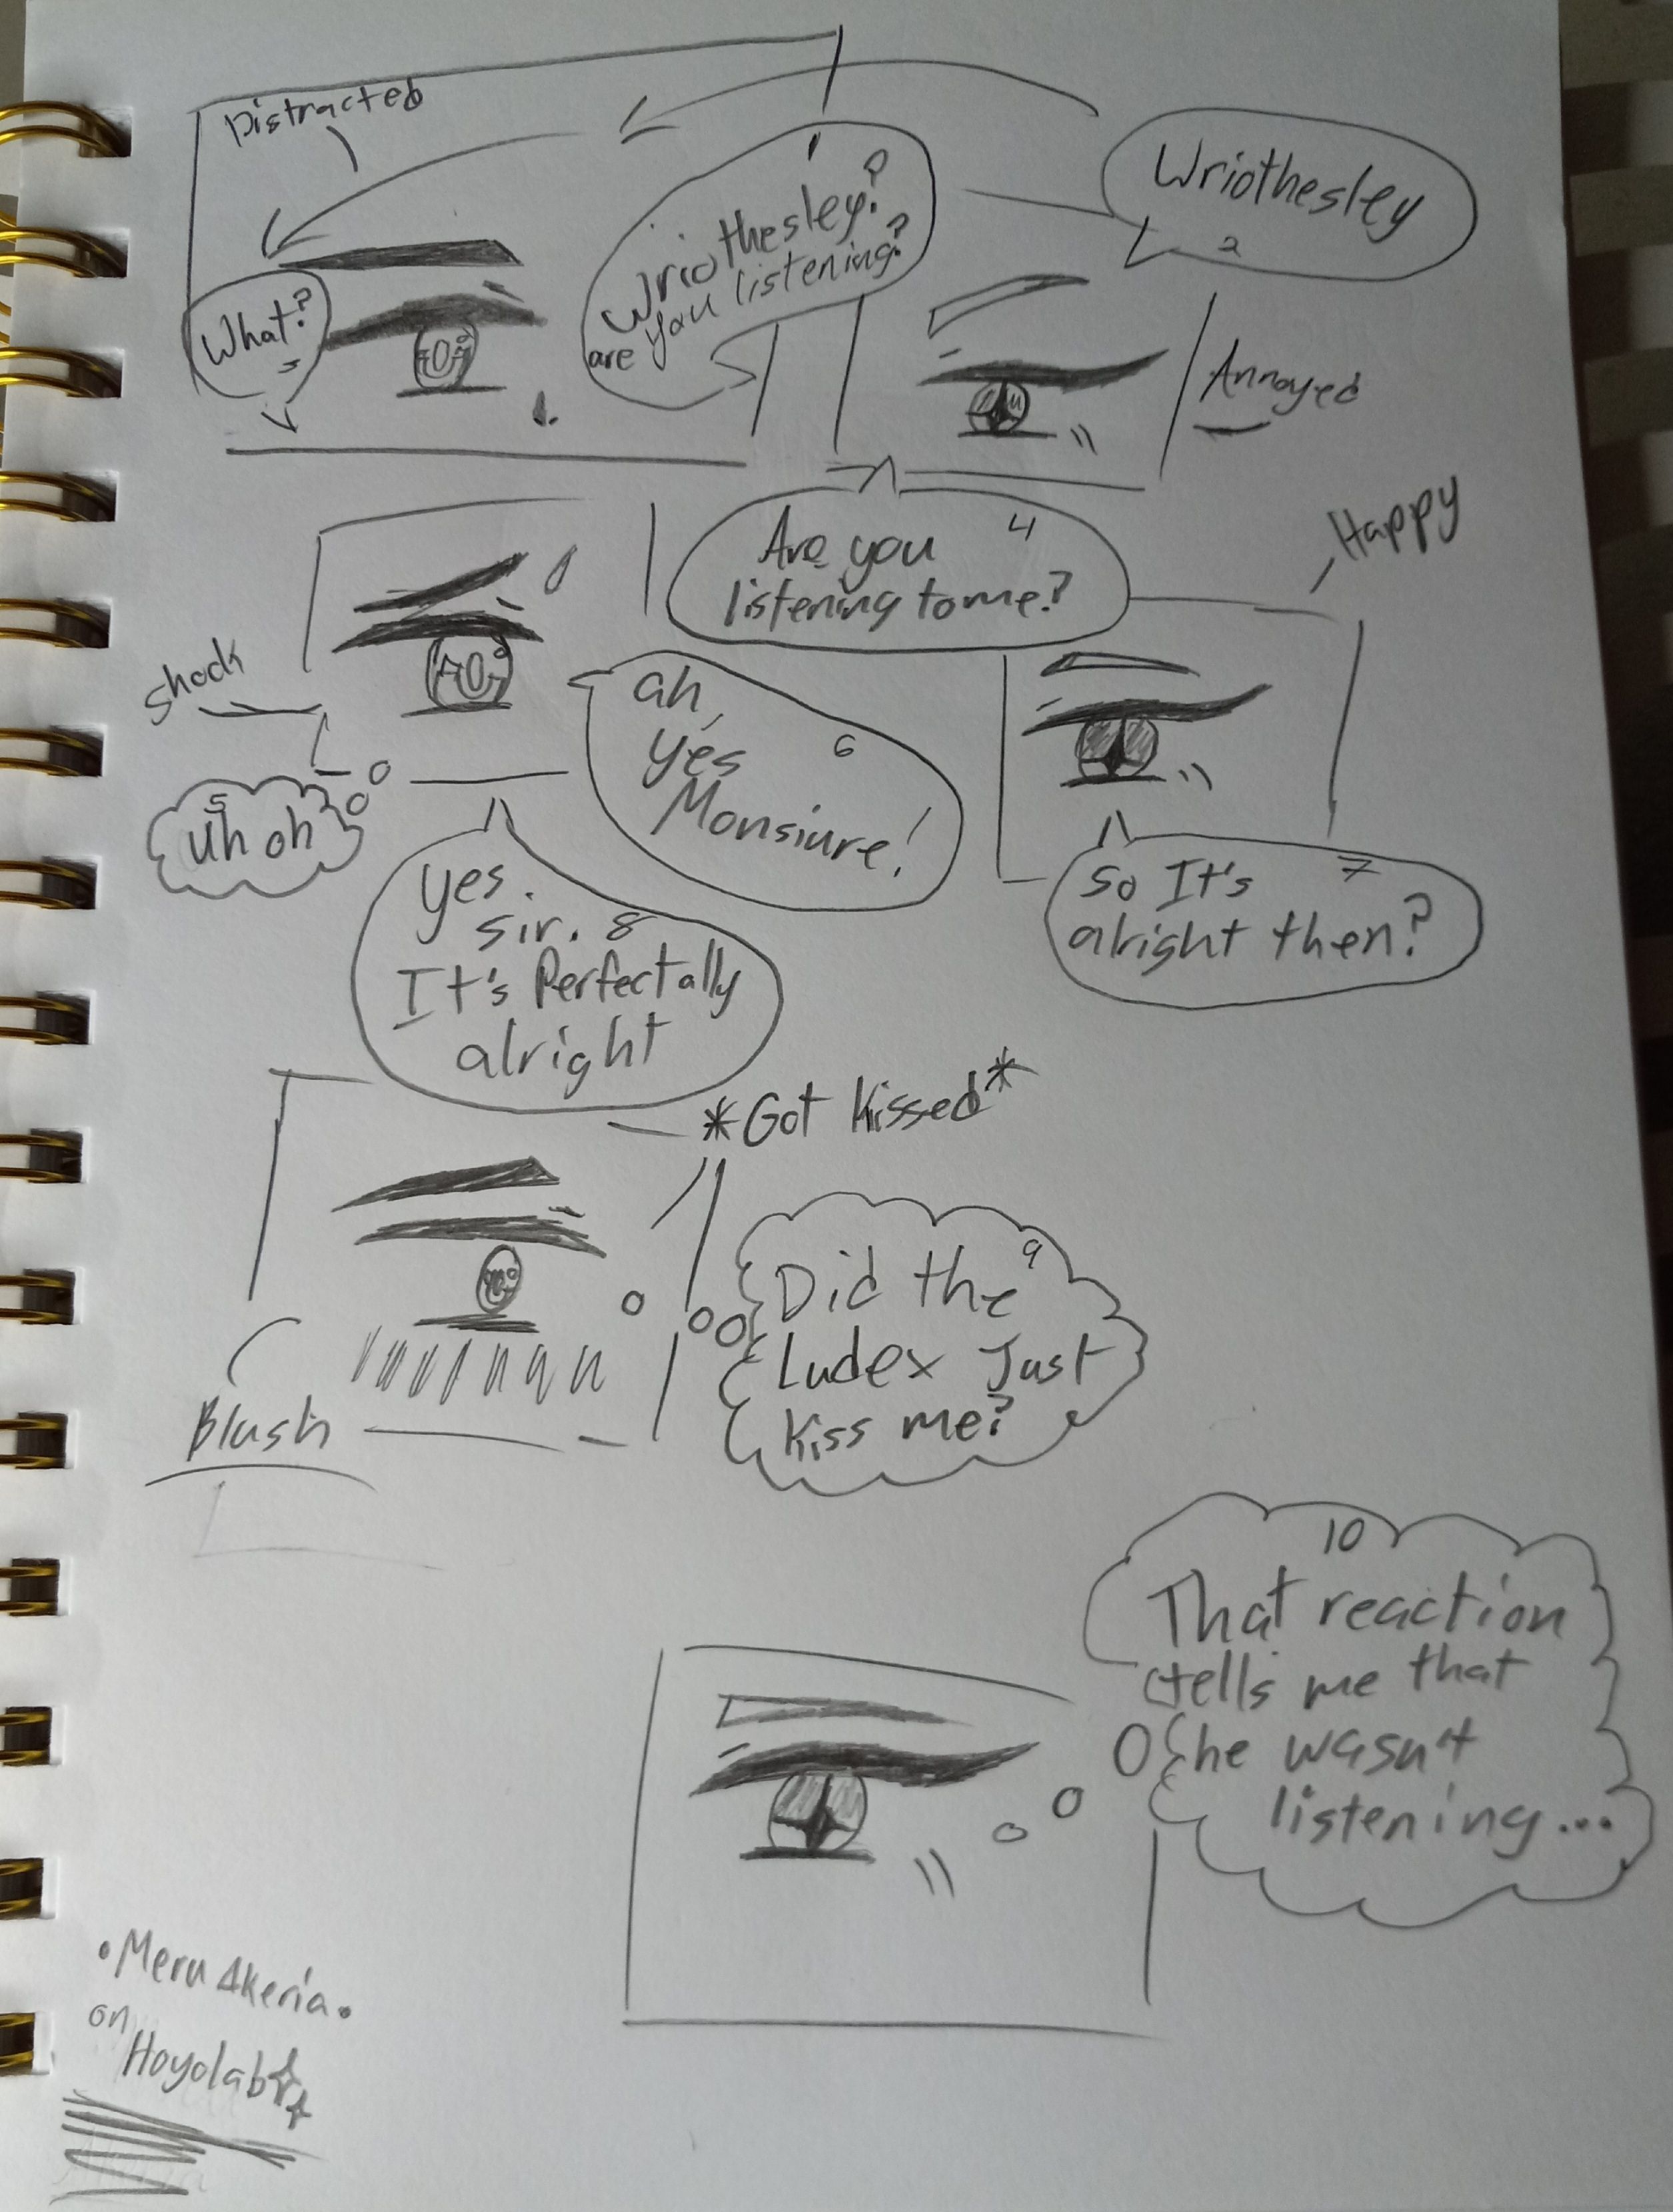 Distracted
1
Wriothesley?
are you listening?
Wriothesley
2
What?
3
Annoyed
Are you 4
listening to me?
Happy
Shock
5
Uh oh
ah,
yes 6
Monsiure!
So It's 7
alright then?
yes.
sir. 8
It's Perfectally
alright
*Got kissed*
Did the 9
Iudex Just
kiss me?
Blush
10
That reaction
tells me that
he wasn't
listening...
•Meru Akeria•
on
Hoyolab